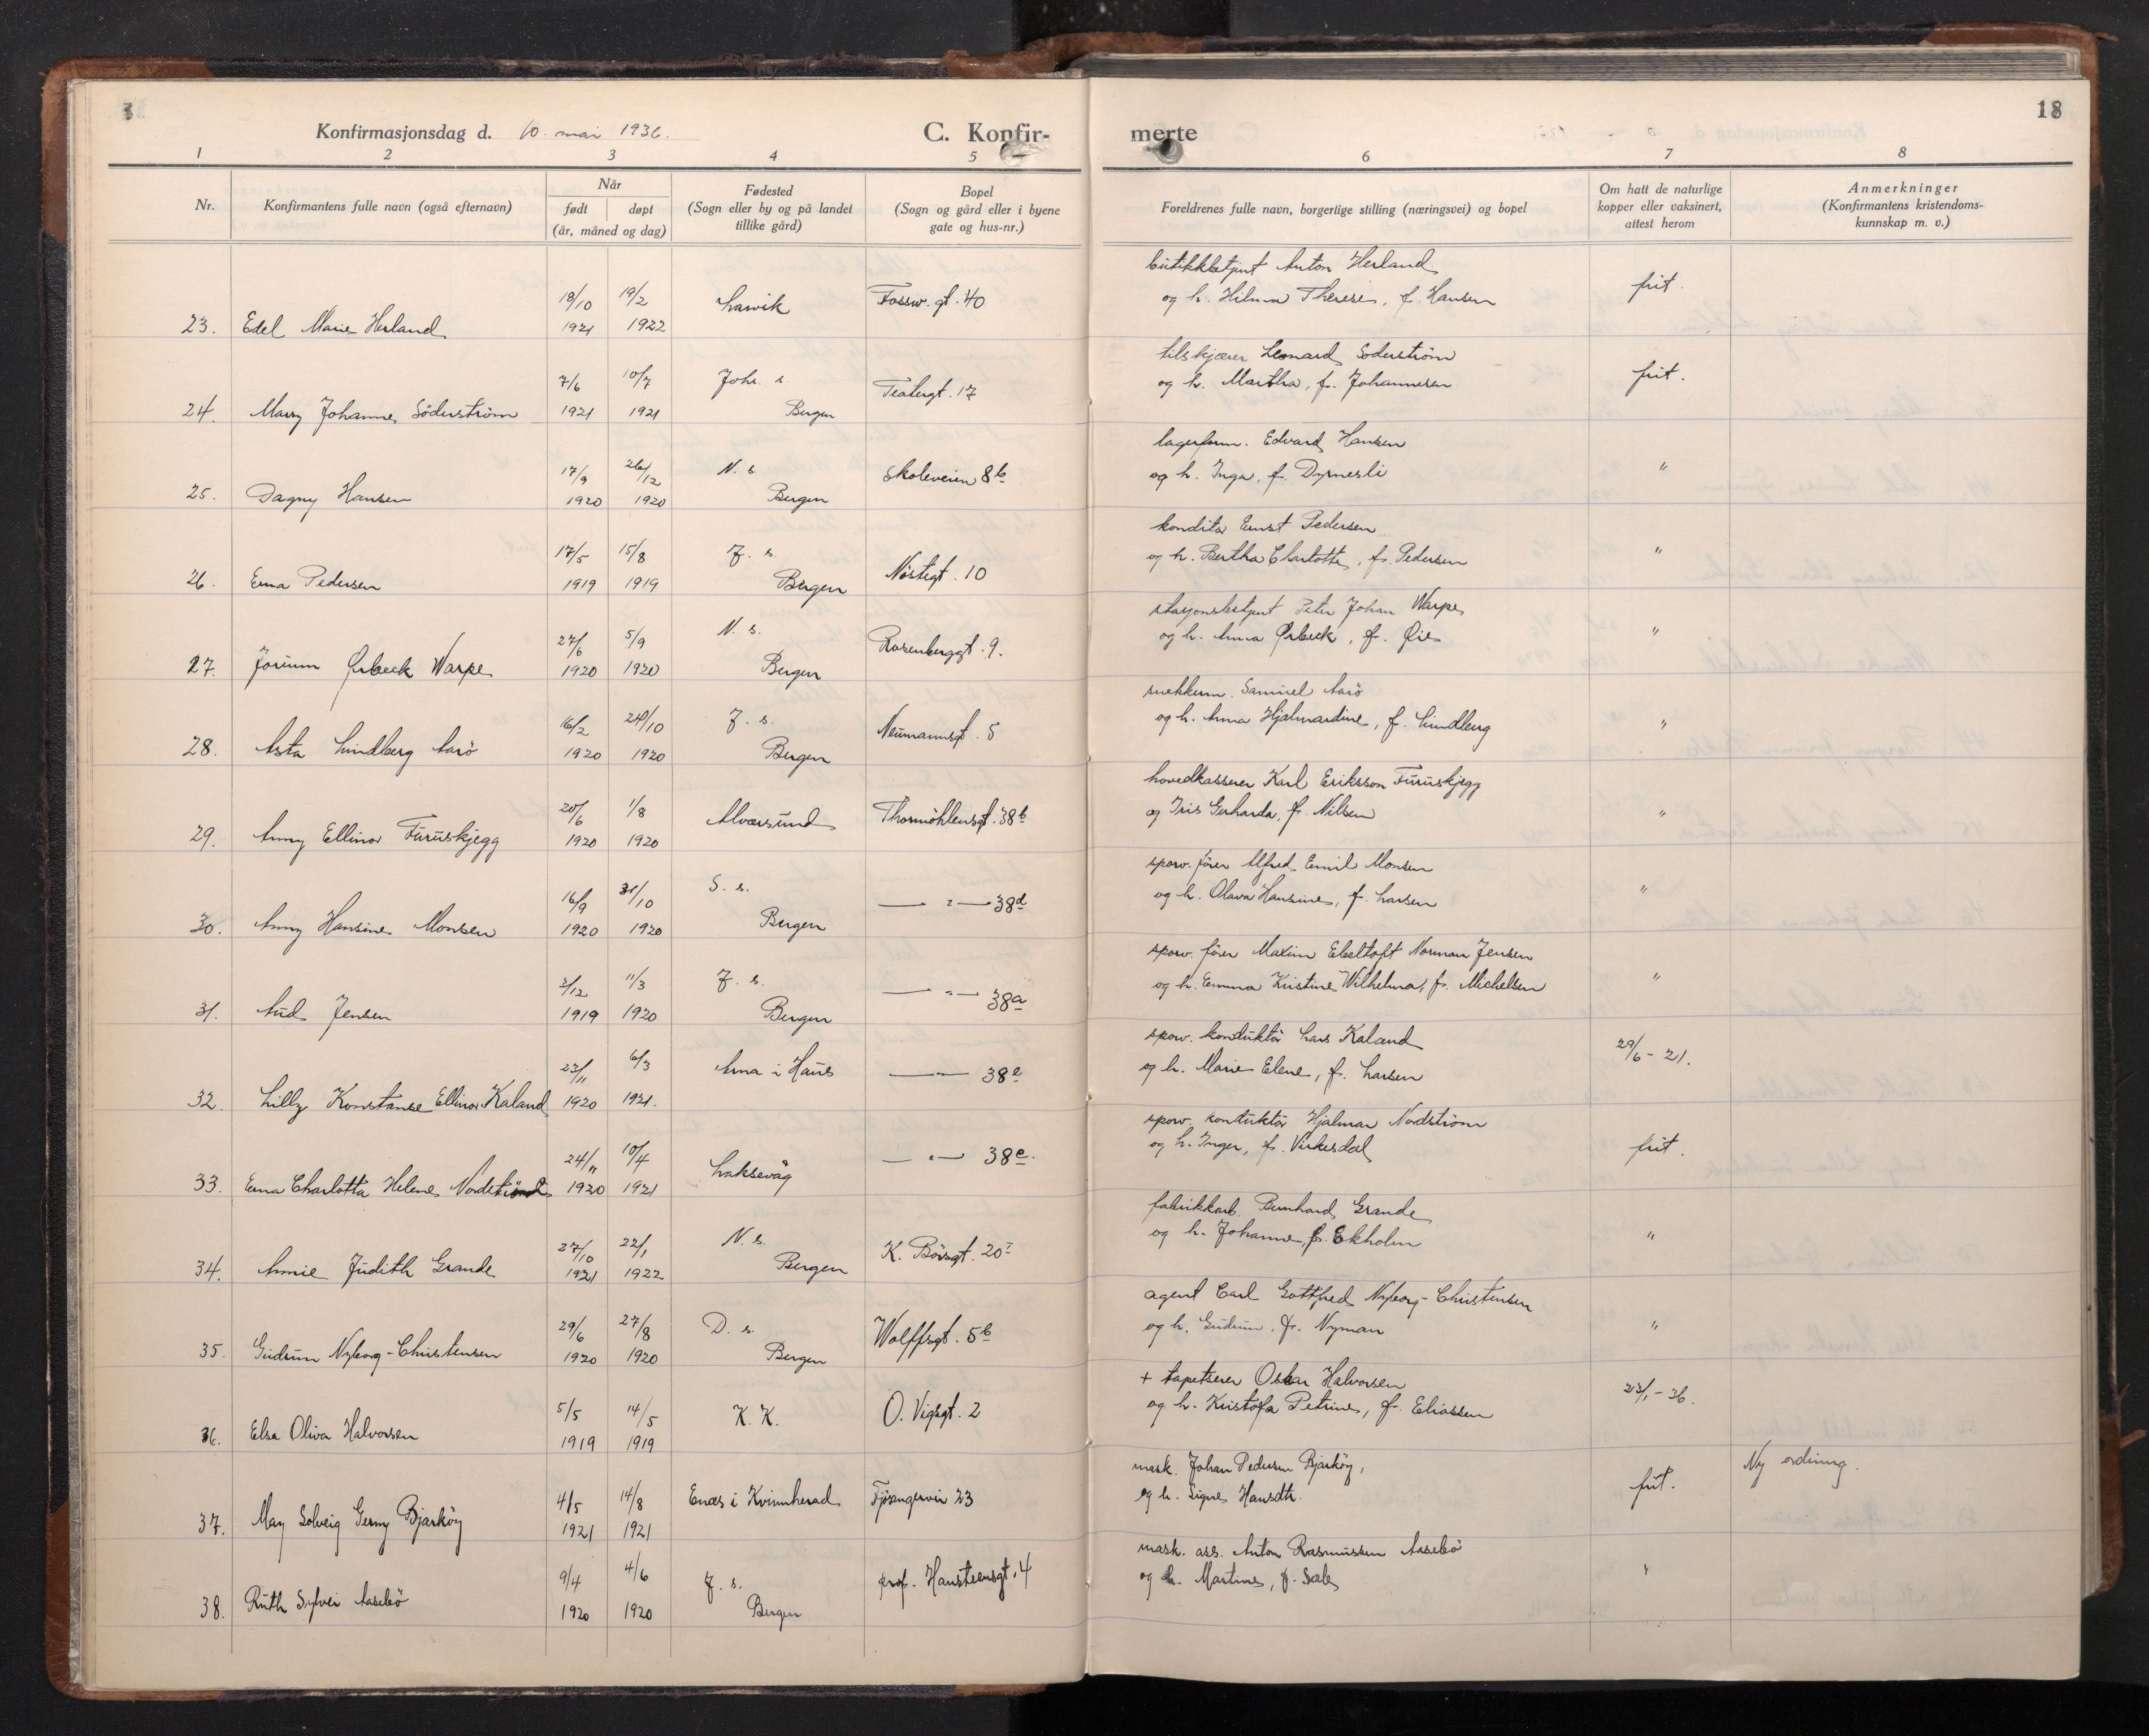 Konfirmasjonsdag d. 10. mai 1936.
C. Konfir-
merte
18
1 2 3 4 5 6 7 8
Nr.
Konfirmantens fulle navn (også efternavn)
Når
født døpt
(år, måned og dag)
Fødested
(Sogn eller by og på landet
tillike gård)
Bopel
(Sogn og gård eller i byene
gate og hus-nr.)
Foreldrenes fulle navn, borgerlige stilling (næringsvei) og bopel
Om hatt de naturlige
kopper eller vaksinert,
attest herom
Anmerkninger
(Konfirmantens kristendoms-
kunnskap m. v.)
butikkbetjent Anton Herland
18/10 19/2 Larvik Fossw. gt. 40 og h. Hilma Therese, f. Hansen frit.
23. Edel Marie Herland 1921 1922
tilskjærer Leonard Söderström
7/6 10/7 Joh. s. Teatergt. 17 og h. Martha, f. Johannesen frit.
24. Marry Johanne Söderström 1921 1921 Bergen
lagerform. Edvard Hansen
17/9 26/12 N. s. Skoleveien 8b og h. Inga, f. Dyrnesli "
25. Dagny Hansen 1920 1920 Bergen
konditor Ernst Pedersen
17/5 15/8 J. s. Nöstegt. 10 og h. Bertha Charlotte, f. Pedersen "
26. Erna Pedersen 1919 1919 Bergen
stasjonsbetjent Peter Johan Warpe
27/6 5/9 N. s. Rosenberggt. 9. og h. Anna Ørbeck, f. Øie "
27. Jorunn Ørbeck Warpe 1920 1920 Bergen
snekkerm. Samuel Aarö
16/2 24/10 J. s. Neumannsgt. 5 og h. Anna Hjalmardine, f. Lindberg "
28. Asta Lindberg Aarö 1920 1920 Bergen
hovedkasserer Karl Eriksson Furuskjegg
20/6 1/8 Alversund Thormöhlensgt. 38b og Iris Gerharda, f. Nilsen "
29. Anny Ellinor Furuskjegg 1920 1920
sporv. förer Alfred Emil Monsen
16/9 31/10 S. s. — " — 38d og h. Olava Hansine, f. Larsen "
30. Anny Hansine Monsen 1920 1920 Bergen
sporv. förer Maxim Ebeltoft Norman Jensen
2/12 11/3 J. s. — " — 38a og h. Emma Kristine Wilhelma, f. Michelsen "
31. Aud Jensen 1919 1920 Bergen
sporv. konduktör Lars Kaland
23/11 6/3 Arna i Haus — " — 38e og h. Marie Elene, f. Larsen 29/6 - 21.
32. Lilly Konstanse Ellinor Kaland 1920 1921.
sporv. konduktör Hjalmar Nordström
24/11 10/4 Laksevåg — " — 38e. og h. Inger, f. Virkesdal frit.
33. Erna Charlotta Helene Nordström 1920 1921
fabrikkarb. Bernhard Grande
27/10 22/1 N. s. K. Börsgt. 20I og h. Johanne, f. Ekholm "
34. Annie Judith Grande 1921 1922 Bergen
agent Carl Gottfred Nyborg-Christensen
29/6 27/8 D. s. Wolffsgt. 5b og h. Gudrun, f. Nyman "
35. Gudrun Nyborg-Christensen 1920 1920 Bergen
+ tapetserer Oskar Halvorsen
5/5 14/5 K. K. O. Vigsgt. 2 og h. Kristofa Petrine, f. Eliassen 23/1 - 36.
36. Elsa Oliva Halvorsen 1919 1919
mask. Johan Pedersen Bjarköy,
4/5 14/8 Enæs i Kvinnherad Fjösangervei 23 og h. Signe Hansdtr. frit. Ny ordning.
37. May Solveig Gerny Bjarköy 1921 1921
mask. ass. Anton Rasmussen Aasebö
9/4 4/6 J. s. prof. Hansteensgt. 4 og h. Martine, f. Sale "
38. Ruth Sylvei Aasebö 1920 1920 Bergen